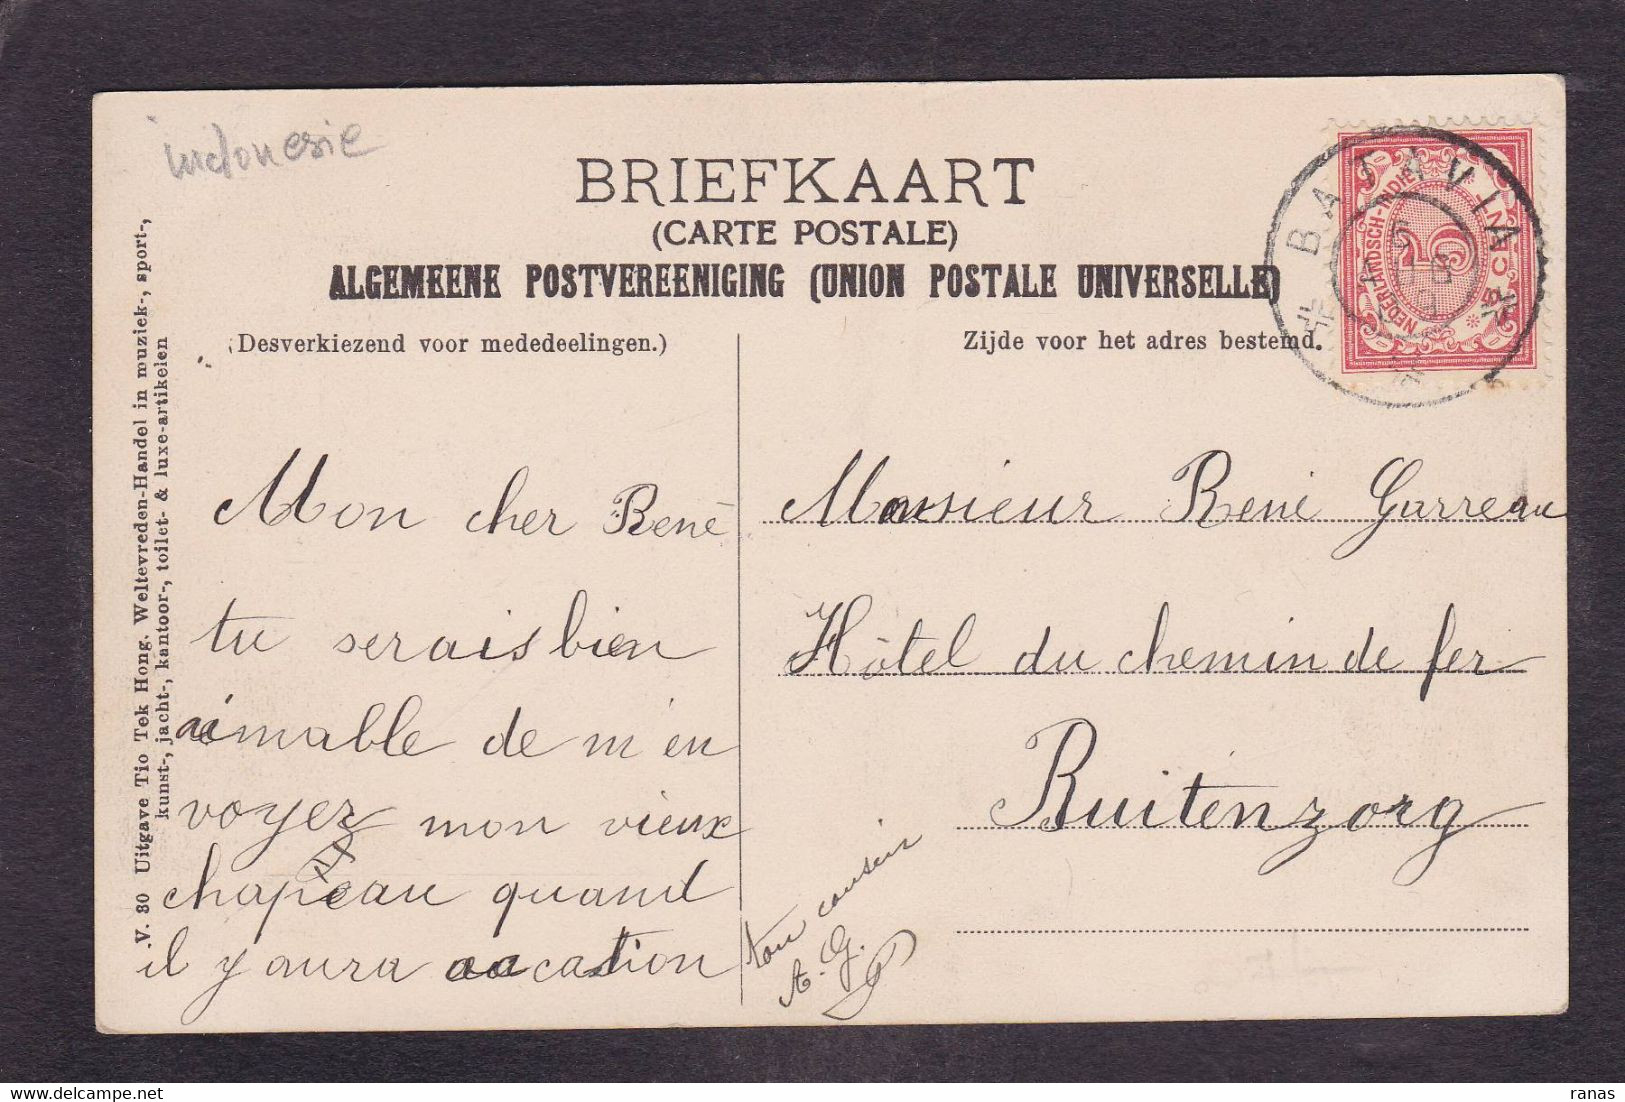 indonesie
BRIEFKAART
(CARTE POSTALE)
ALGEMEENE POSTVEREENIGING (UNION POSTALE UNIVERSELLE)
Desverkiezend voor mededeelingen.)
Zijde voor het adres bestemd.
BATAVIA
NEDERLANDSCH-INDIE
5
CENT
V. 80 Uitgave Tio Tek Hong. Weltevreden-Handel in muziek-, sport-,
kunst-, jacht-, kantoor-, toilet- & luxe-artikelen
Mon cher René
tu serais bien
aimable de m'en
voyez mon vieux
chapeau quand
il y aura occastion
ton cousin
A. G.
Monsieur René Garreau
Hôtel du chemin de fer
Buitenzorg
ranas